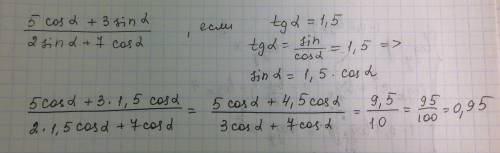 5 cosα + 3 sinα / 2 sinα + 7 cosα , если tgα = 1,5
tgα = sin / cosα = 1,5 =>
sinα = 1,5 · cosα
5cosα + 3 · 1,5 cosα / 2 · 1,5 cosα + 7cosα = 5 cosα + 4,5cosα / 3cosα + 7 cosα = 9,5 / 10 = 95 / 100 = 0,95